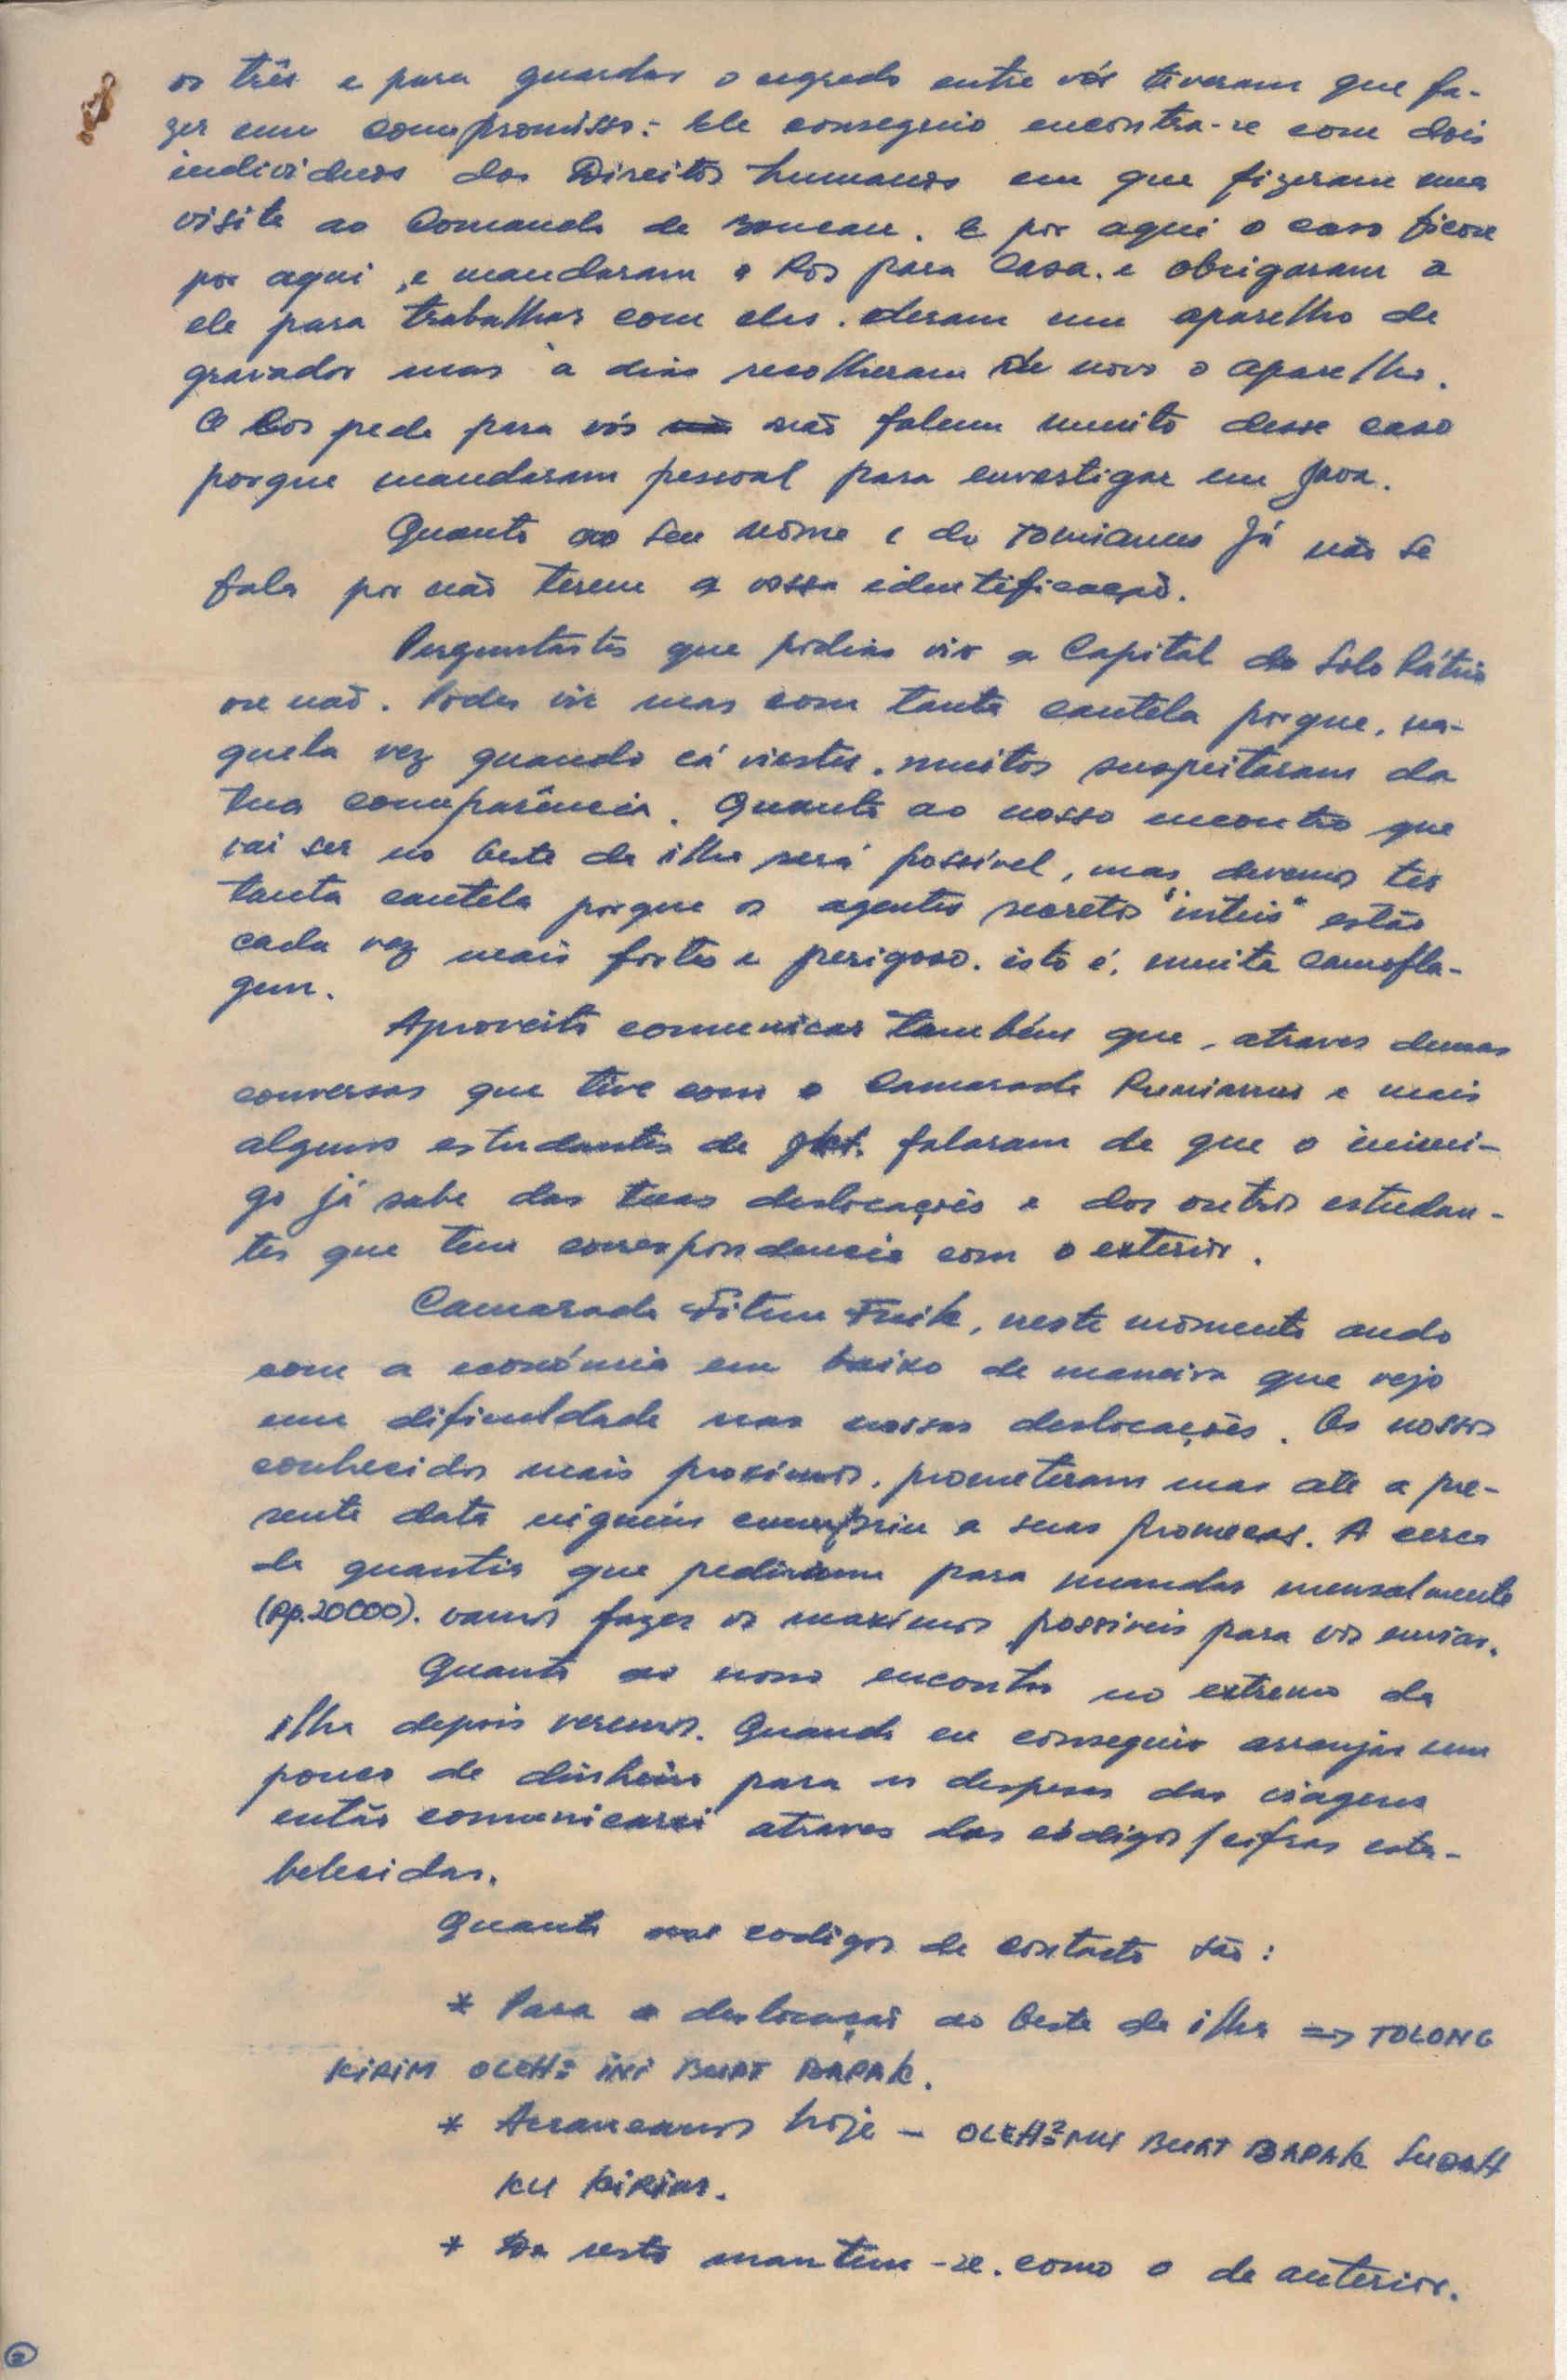 os três e para guardar o segredo entre vós tiveram que fa-
zer um compromisso:- Ele conseguio encontra-se com dois
individuos dos Direitos humanos em que fizeram uma
visita ao Comando de . E por aqui o caso ficou
por aqui, e mandaram o Ros para Casa. e obrigaram a
ele para trabalhar com eles. deram um aparelho de
gravador mas à dias recolheram de novo o aparelho.
O Ros pede para vós não falem muito desse caso
porque mandaram pessoal para envestigar em Java.
Quanto ao seu nome e do Já não se
fala por não terem a vossa identificação.
Perguntastes que podias vir a Capital do Solo Pátrio
ou não. Podes vir mas com tanta cautela porque, na-
quela vez quando cá viestes. muitos suspeitaram da
tua comparência. Quanto ao nosso encontro que
vai ser no Oeste da ilha será possível, mas devemos ter
tanta cautela porque os agentes secretos "inteis" estão
cada vez mais fortes e perigoso. isto é, muita camofla-
gem.
Aproveito comunicar também que, atraves dumas
conversas que tive com o Camarada e mais
alguns estudantes de Jkt. falaram de que o inimi-
go já sabe das tuas deslocações e dos outros estudan-
tes que tem correspondencia com o exterior.
Camarada Fitun Fuik, neste momento ando
com a económia em baixo de maneira que vejo
uma dificuldade nas nossas deslocações. Os nossos
conhecidos mais proximos. prometeram mas ate a pre-
sente data niguém cumpriu a suas promeças. A cerca
de quantia que pediram para mandar mensalmente
(Rp.20000). vamos fazer os maximos possiveis para vos enviar.
Quanto ao nosso encontro no extremo da
ilha depois veremos. Quando eu conseguir arranjar um
pouco de dinheiro para as despesas das viagens
então comunicarei atraves dos códigos/cifras esta-
belecidas.
Quanto aos codigos de contacto são:
* Para a deslocação ao Oeste da ilha => TOLONG
KIRIM OLEH² INI BUAT BAPAK.
* Arrancamos hoje - OLEH²MU BUAT BAPAK SUDAH
KU KIRIM.
* Do resto mantem-se. como o de anterior.